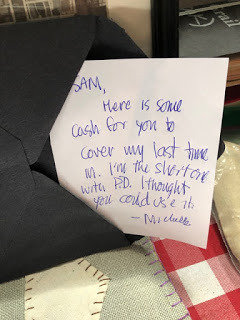 SAM,
Here is some
cash for you to
cover my last time
in. I'm the short one
with P.D. I thought
you could use it.
- Michelle